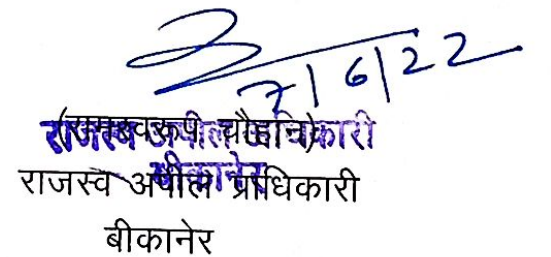 7/6/22
(रामस्वरूप चौहान)
राजस्व अपील अधिकारी
बीकानेर
राजस्व अपील प्राधिकारी
बीकानेर